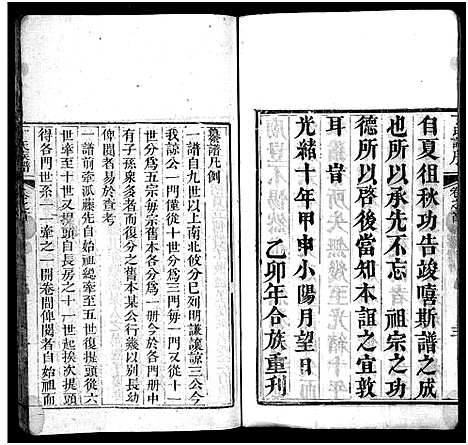 自夏徂秋功告竣嘻斯譜之成
也所以承先不忘 祖宗之功
德所以啓後當知本誼之宜敦
耳 旹
光緒十年甲申小陽月望日
乙卯年合族重刊
纂譜凡例
一譜自九世以上南北攸分已列明謙讓諒三公今
我諒公一門又各按世分爲三門每一門又從十一
世分爲五宗每宗舊本各分爲一册今於各門册中
有子孫衆多者而復分之舊本某公行幾以別長幼
俾閱者易於查考
一譜前牽派藤先自始祖總牽至五世復提頭從六
世牽至十一世又提頭自長房之十一世起挨次提頭
得各門世系一一牽之一開卷間俾閱者自始祖而